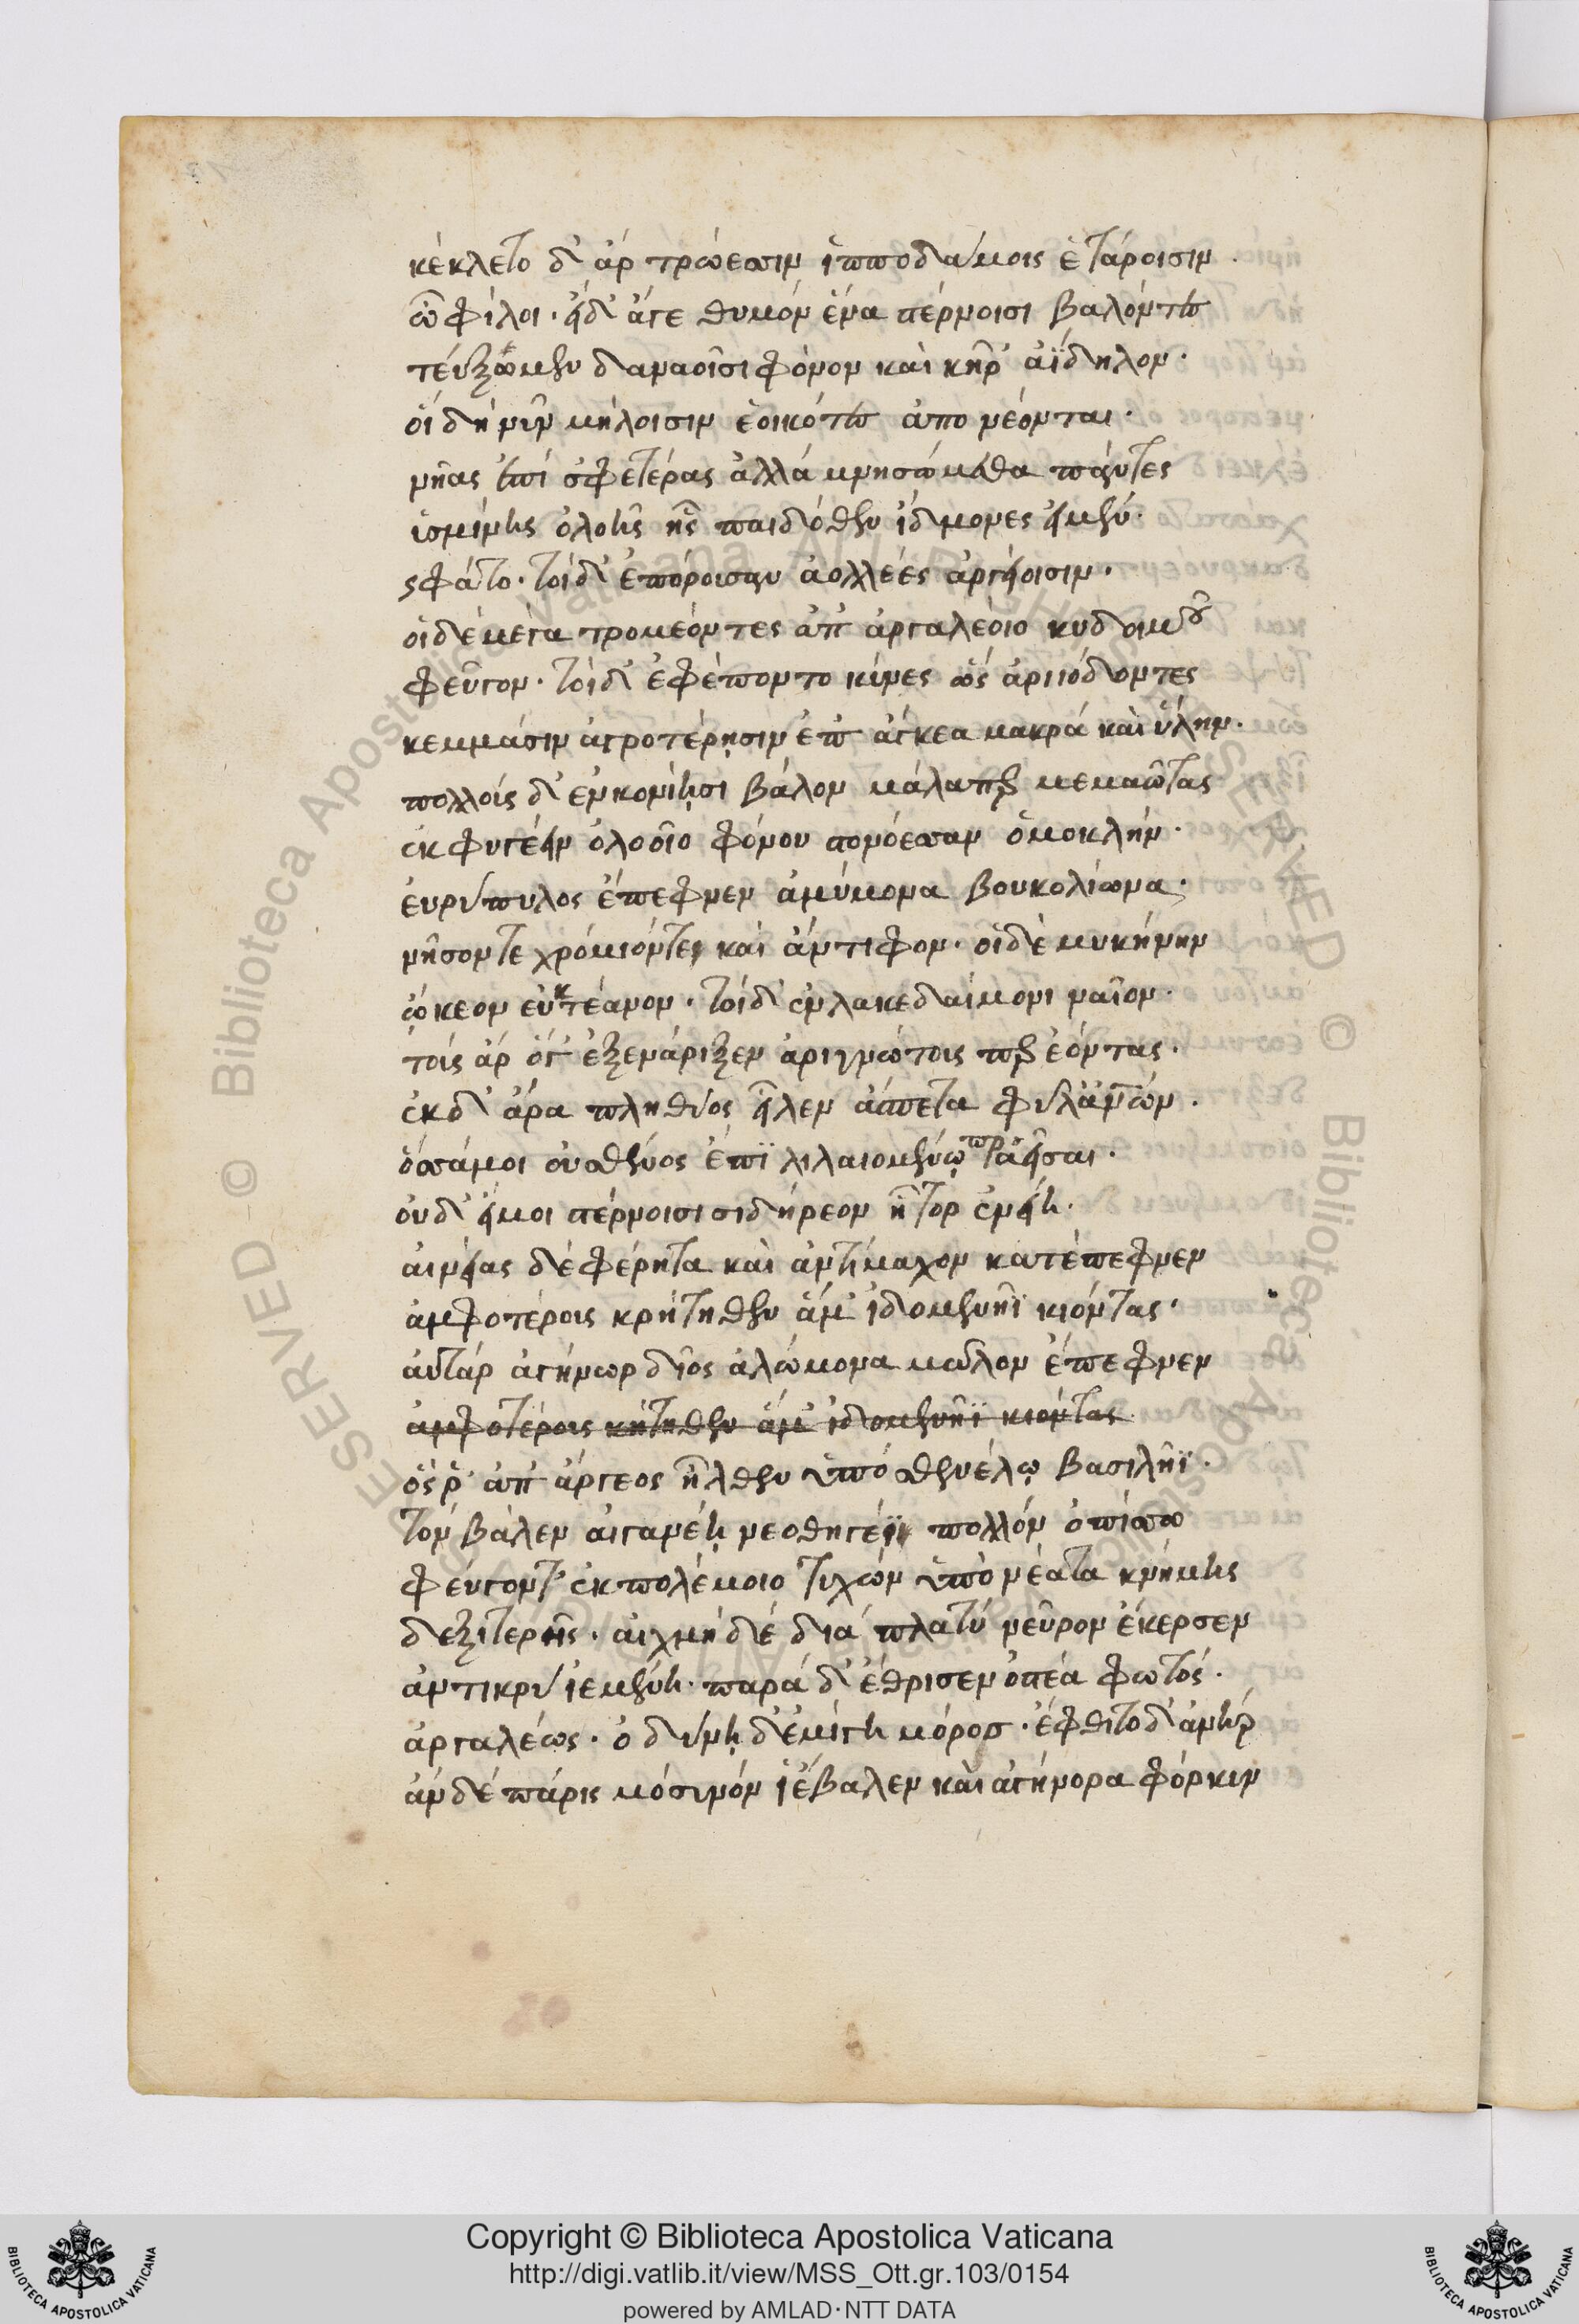 κέκλετο δ' ἀρ τρώεσσιν ἱπποδάμοις ἑτάροισιν.
ὦ φίλοι· εἰδ' ἄγε θυμόν ἕνα στέρνοισι βαλόντες
τεύξωμεν δαναοῖσι φόνον καὶ κῆρ' ἀΐδηλον.
οἵ δή νῦν μήλοισιν ἐοικότες ἀπο νέονται.
νῆας ἐπί σφετέρας ἀλλά μνησώμεθα πάντες
ὑσμίνης ὀλοῆς ἧς παιδόθεν ἴδμονες εἰμέν.
ς φάτο· τοίδ' ἐπόροισαν ἀολλέες ἀργείοισιν.
οἱδέ μέγα τρομέοντες ἀπ' ἀργαλέοιο κυδοιμοῦ
φεῦγον· τοίδ' ἐφέποντο κύνες ὥς ἀργιόδοντες
κεμμάσιν ἀγροτέρῃσιν ἐπ' ἄγκεα μακρά καὶ ὕλην.
πολλοίς δ' ἐν κονίῃσι βάλον μάλα περ μεμαῶτας
ἐκφυγέειν ὀλοοῖο φόνου στονόεσσαν ὁμοκλήν.
εὐρύπυλος ἔπεφνεν ἀμύμονα βουκολίωνα.
νῆσόντε χρόμιόντε καὶ ἄντιφον· οἱδὲ μυκήνην
ᾤκεον εὐκτέανον· τοίδ' ἐν λακεδαίμονι ναῖον.
τοίς ἀρ ὅγ' ἐξενάριξεν ἀριγνώτοις περ ἐόντας.
ἐκδ' ἄρα πληθύος εἷλεν ἄσπετα φῦλ' ἀνῶν.
ὅσσάμοι οὐ σθένος ἐπϊ λιλαιομένῳ περ ἀεῖσαι.
οὐδ' εἴμοι στέρνοισι σιδήρεον ἦτορ ἐνείη.
αἰνείας δέ φέρητα καὶ ἀντίμαχον κατέπεφνεν
ἀμφοτέροις κρήτηθεν ἅμ' ἰδομενῆϊ κιόντας.
αὐτάρ ἀγήνωρ δῖος ἀλώμονα μῶλον ἔπεφνεν
ἀμφοτέροις κήτηθεν ἅμ' ἰδομενῆϊ κιόντας.
ὅς ῥ' ἀπ' ἄργεος ἦλθεν ὑπό σθενέλῳ βασιλῆϊ.
τόν βάλεν αἰγανέῃ νεοθηγέϊ πολλόν ὀπίσσω
φεύγοντ' ἐκ πολέμοιο τυχών ὑπό νέατα κνήμης
δεξιτερῆς· αἰχμή δέ διά πλατύ νεῦρον ἔκερσεν
ἀντικρύ ἱεμένη· παρά δ' ἔθρισεν ὀστέα φωτός.
ἀργαλέως· ὀδύνῃ δ' ἐμίγη μόροσ· ἔφθιτο δ' ἀνήρ
ἀν δέ πάρις μόσυνόν ἰ ἔβαλεν καὶ ἀγήνορα φόρκυν
Copyright © Biblioteca Apostolica Vaticana
http://digi.vatlib.it/view/MSS_Ott.gr.103/0154
powered by AMLAD·NTT DATA